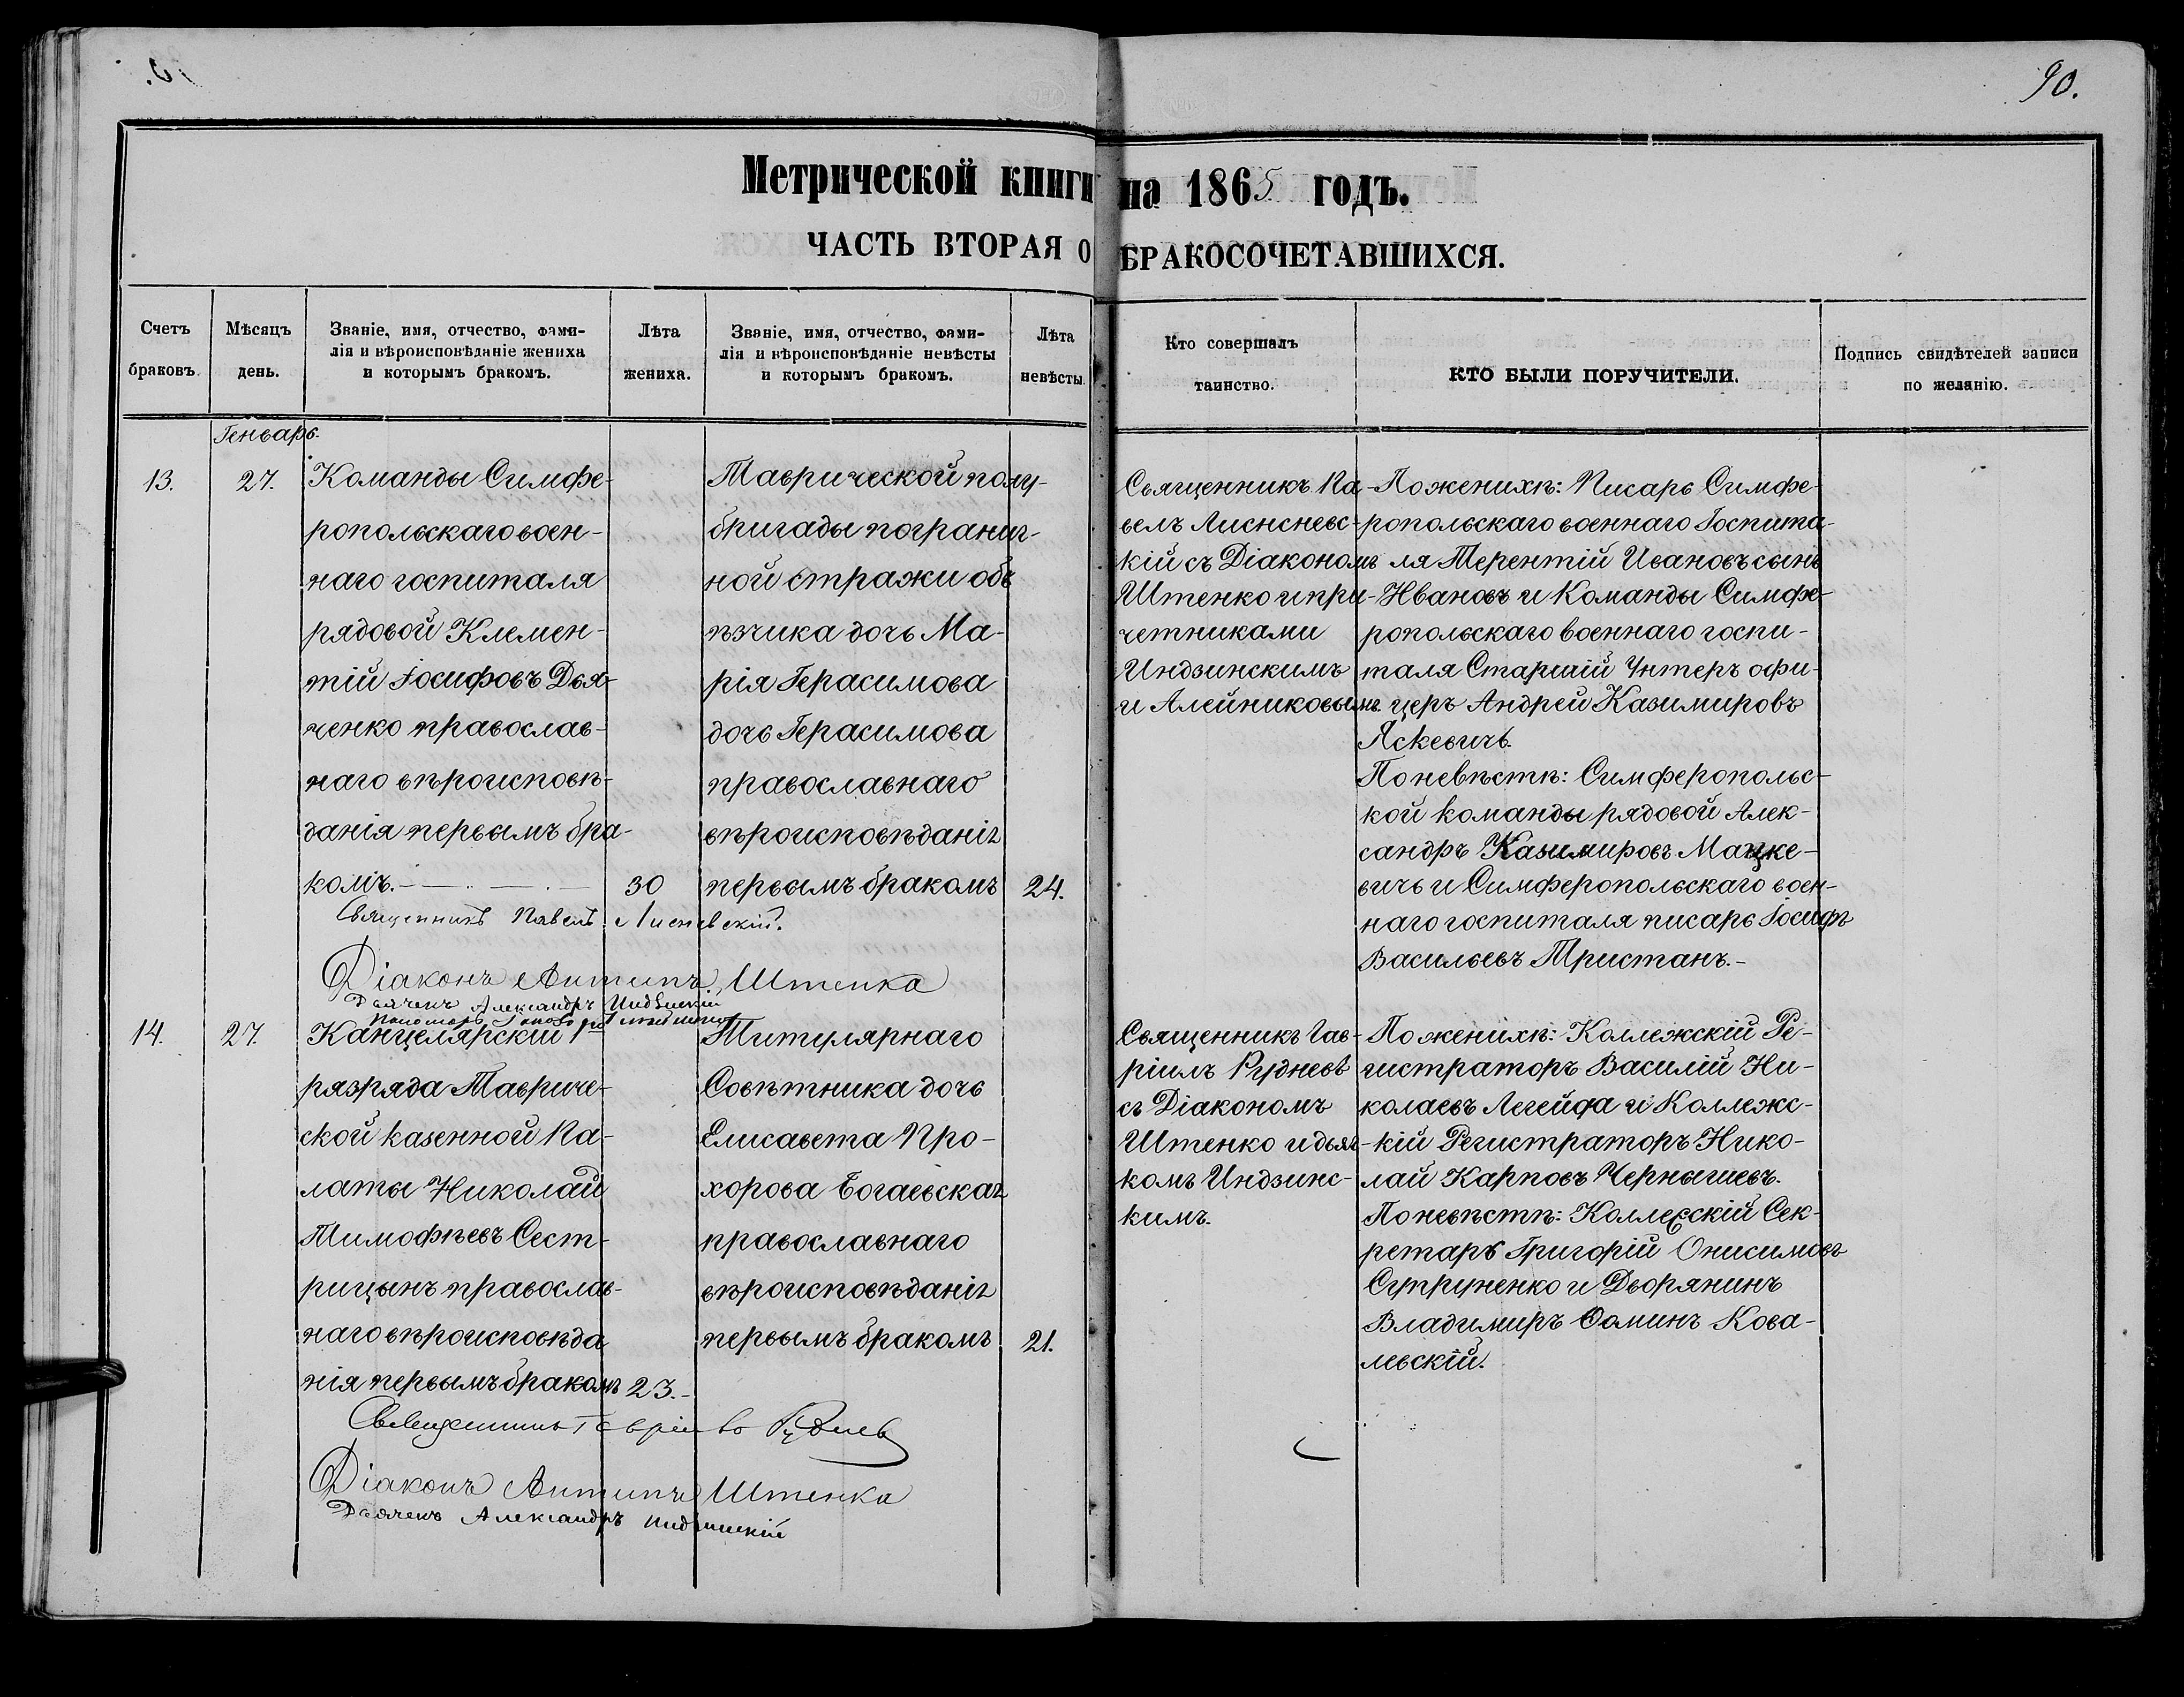 90.
Метрической книги на 1865 годъ.
ЧАСТЬ ВТОРАЯ О БРАКОСОЧЕТАВШИХСЯ.
Счетъ
браковъ.
Мѣсяцъ
день.
Званіе, имя, отчество, фами-
лія и вѣроисповѣданіе жениха
и которымъ бракомъ.
Лѣта
жениха.
Званіе, имя, отчество, фами-
лія и вѣроисповѣданіе невѣсты
и которымъ бракомъ.
Лѣта
невѣсты.
Кто совершалъ
таинство.
КТО БЫЛИ ПОРУЧИТЕЛИ.
Подпись свидѣтелей записи
по желанію.
Генварь.
13.
27.
Команды Симфе-
ропольскаго воен-
наго госпиталя
рядовой Климен-
тій Іосифовъ Дья-
ченко православ-
наго вѣроисповѣ-
данія первымъ бра-
комъ.
30
Таврической полу-
бригады погранич-
ной стражи объ
ѣзчика дочь Ма-
рія Герасимова
дочь Герасимова
православнаго
вѣроисповѣданія
первымъ бракомъ
24.
Священникъ Па-
велъ Лисневс-
кій съ Діакономъ
Штенко и при-
четниками
Индзинскимъ
и Алейниковымъ.
По женихѣ: Писарь Симфе-
ропольскаго военнаго Госпита-
ля Терентій Ивановъ сынъ
Ивановъ и Команды Симфе-
ропольскаго военнаго госпи-
таля Старшій Унтеръ офи-
церъ Андрей Казимировъ
Яскевичъ.
По невѣстѣ: Симферопольс-
кой команды рядовой Алек-
сандръ Казимировъ Мацке-
вичъ и Симферопольскаго воен-
наго госпиталя писарь Іосифъ
Васильевъ Тристанъ.-
Священникъ Павелъ Лисневскій.
Діаконъ Антипъ Штенка
Дьячекъ Александръ Индзинскій
Пономарь
14.
27.
Канцелярскій 1го
разряда Тавриче-
ской казенной Па-
латы Николай
Тимофѣевъ Сест-
рицынъ православ-
наго вѣроисповѣда
нія первымъ бракомъ
23.-
Титулярнаго
Совѣтника дочь
Елисавета Про-
хорова Богаевская
православнаго
вѣроисповѣданія
первымъ бракомъ
21.
Священникъ Гав-
ріилъ Рудневъ
съ Діакономъ
Штенко и дьяч-
комъ Индзинс-
кимъ.
По женихѣ: Коллежскій Ре-
гистраторъ Василій Ни-
колаевъ Легейда и Коллежс-
кій Регистраторъ Нико-
лай Карповъ Чернышевъ.
По невѣстѣ: Коллежскій Сек-
ретарь Григорій Онисимовъ
Супруненко и Дворянинъ
Владимиръ Ѳоминъ Кова-
левскій.
Священникъ Гавріилъ Рудневъ
Діаконъ Антипъ Штенка
Дьячекъ Александръ Индзинскій